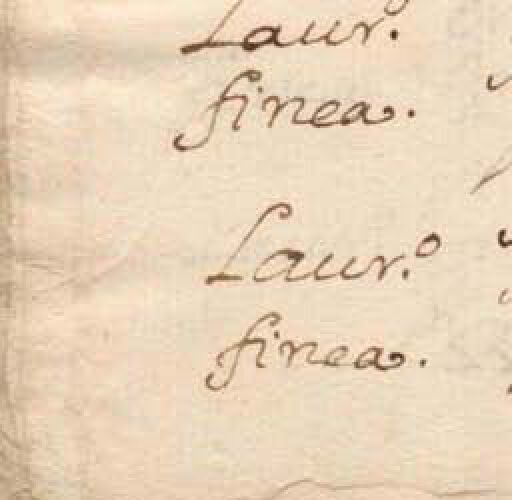 Laur.º
finea.
Laur.º
finea.